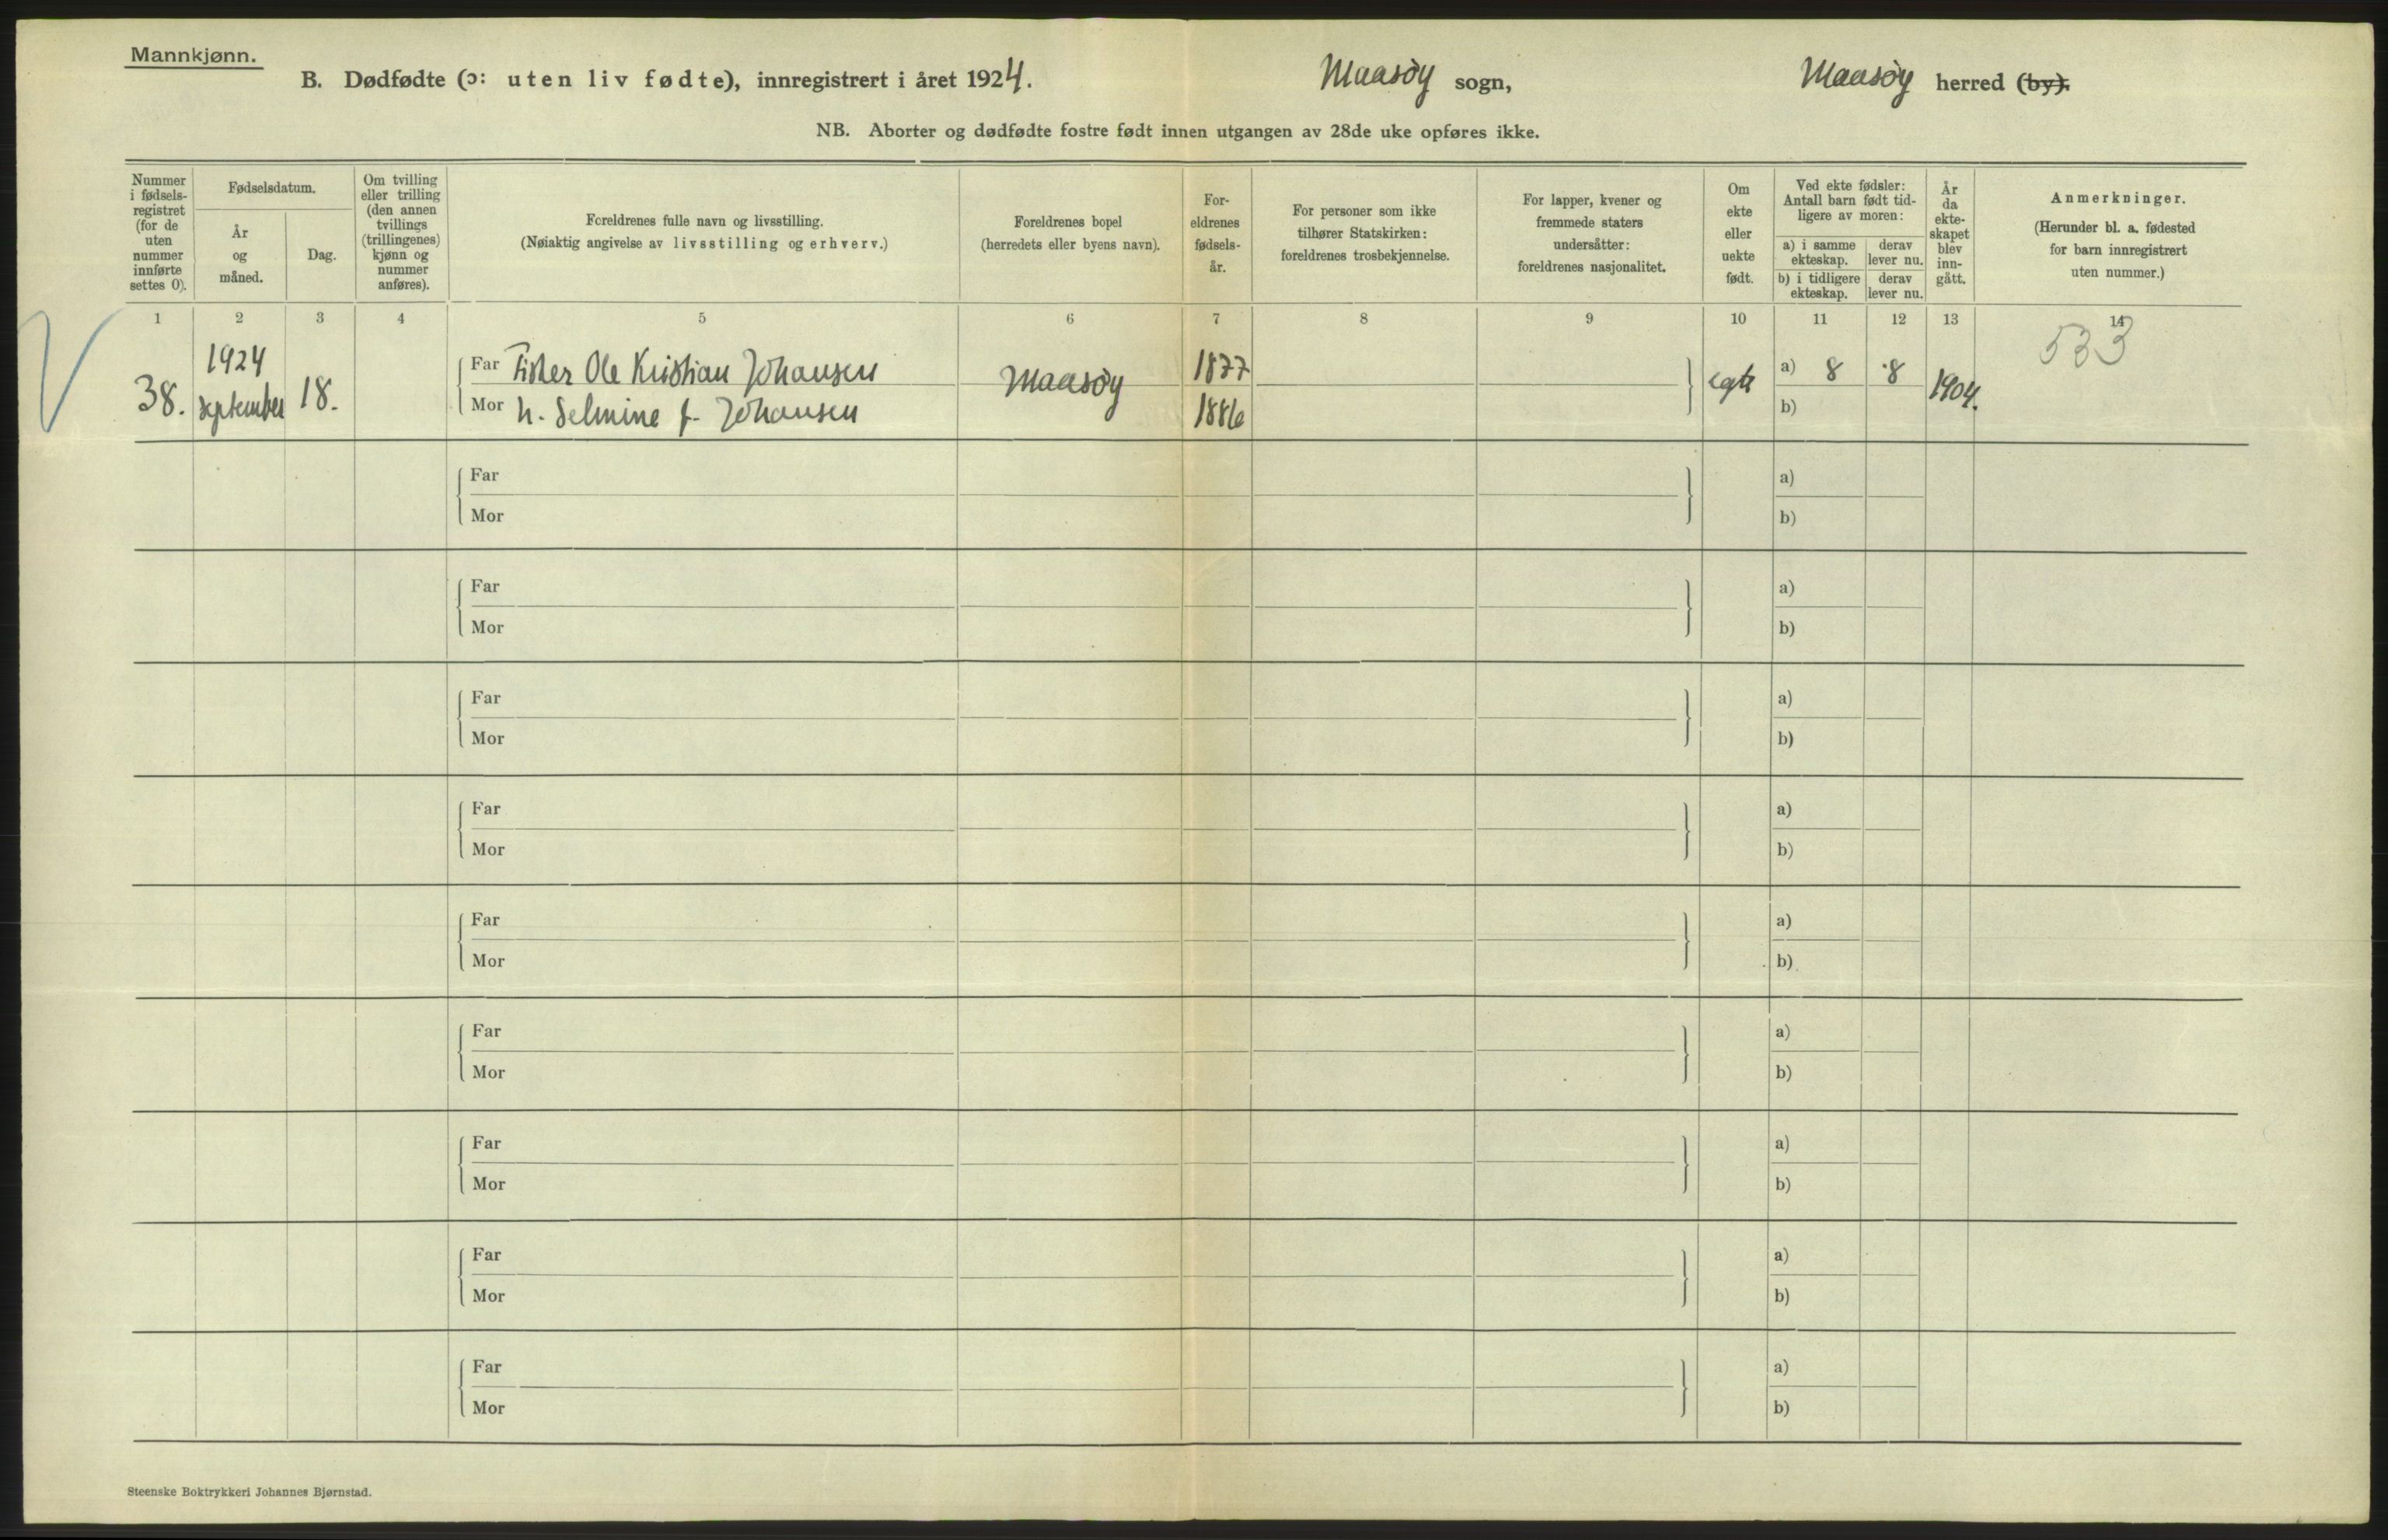 Mannkjønn.
B. Dødfødte (ɔ: uten liv fødte), innregistrert i året 1924. Maasöy sogn, Maasöy herred (by).
NB. Aborter og dødfødte fostre født innen utgangen av 28de uke opføres ikke.
Nummer i fødsels-registret (for de uten nummer innførte settes 0).
Fødselsdatum.
År og måned.
Dag.
Om tvilling eller trilling (den annen tvillings (trillingenes) kjønn og nummer anføres).
Foreldrenes fulle navn og livsstilling.
(Nøiaktig angivelse av livsstilling og erhverv.)
Foreldrenes bopel
(herredets eller byens navn).
For-eldrenes fødsels-år.
For personer som ikke tilhører Statskirken: foreldrenes trosbekjennelse.
For lapper, kvener og fremmede staters undersåtter: foreldrenes nasjonalitet.
Om ekte eller uekte født.
Ved ekte fødsler: Antall barn født tid-ligere av moren:
a) i samme ekteskap. derav lever nu.
b) i tidligere ekteskap. derav lever nu.
År da ekte-skapet blev inn-gått.
Anmerkninger.
(Herunder bl. a. fødested for barn innregistrert uten nummer.)
1 2 3 4 5 6 7 8 9 10 11 12 13 14
533
38. 1924 september 18.
Far Fisker Ole Kristian Johansen
Mor h. Selmine f. Johansen
Maasöy
1877
1886
egte
a) 8 8
b)
1904.
Far a)
Mor b)
Far a)
Mor b)
Far a)
Mor b)
Far a)
Mor b)
Far a)
Mor b)
Far a)
Mor b)
Far a)
Mor b)
Far a)
Mor b)
Far a)
Mor b)
Steenske Boktrykkeri Johannes Bjørnstad.